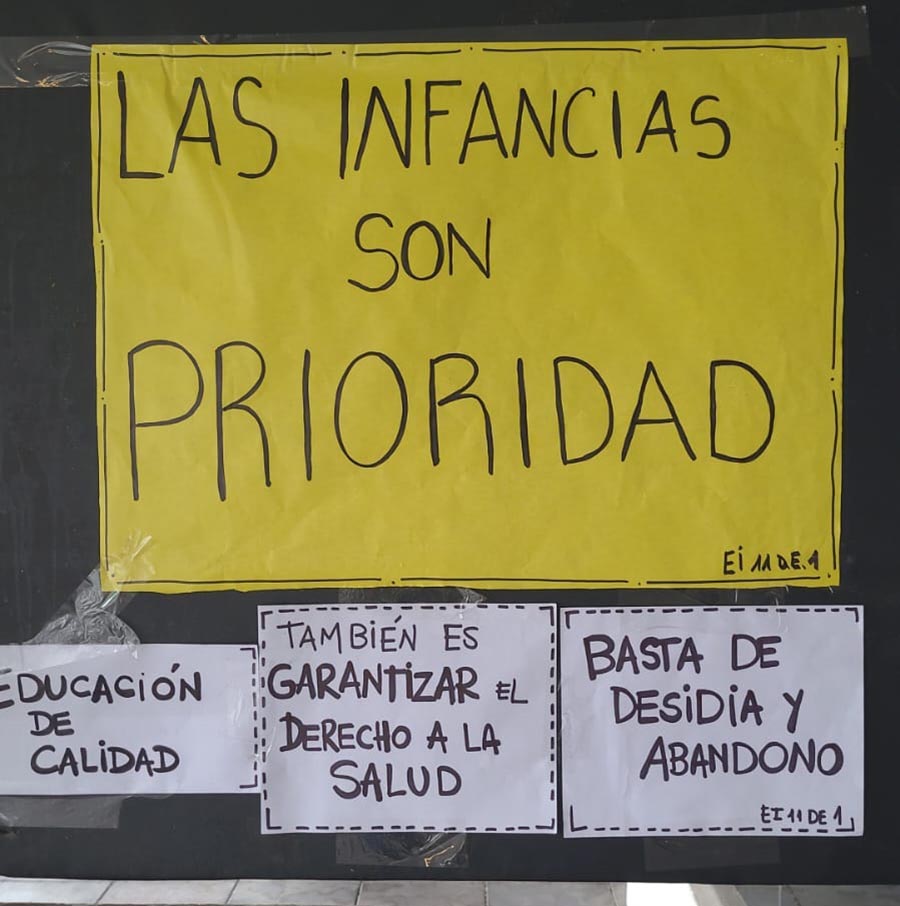 LAS INFANCIAS
SON
PRIORIDAD
Ei 11 D.E.1
EDUCACiÓN
DE
CALiDAD
TAMBiÉN ES
GARANTiZAR EL
DERECHO A LA
SALUD
BASTA DE
DESiDiA Y
ABANDONO
EI 11 DE 1